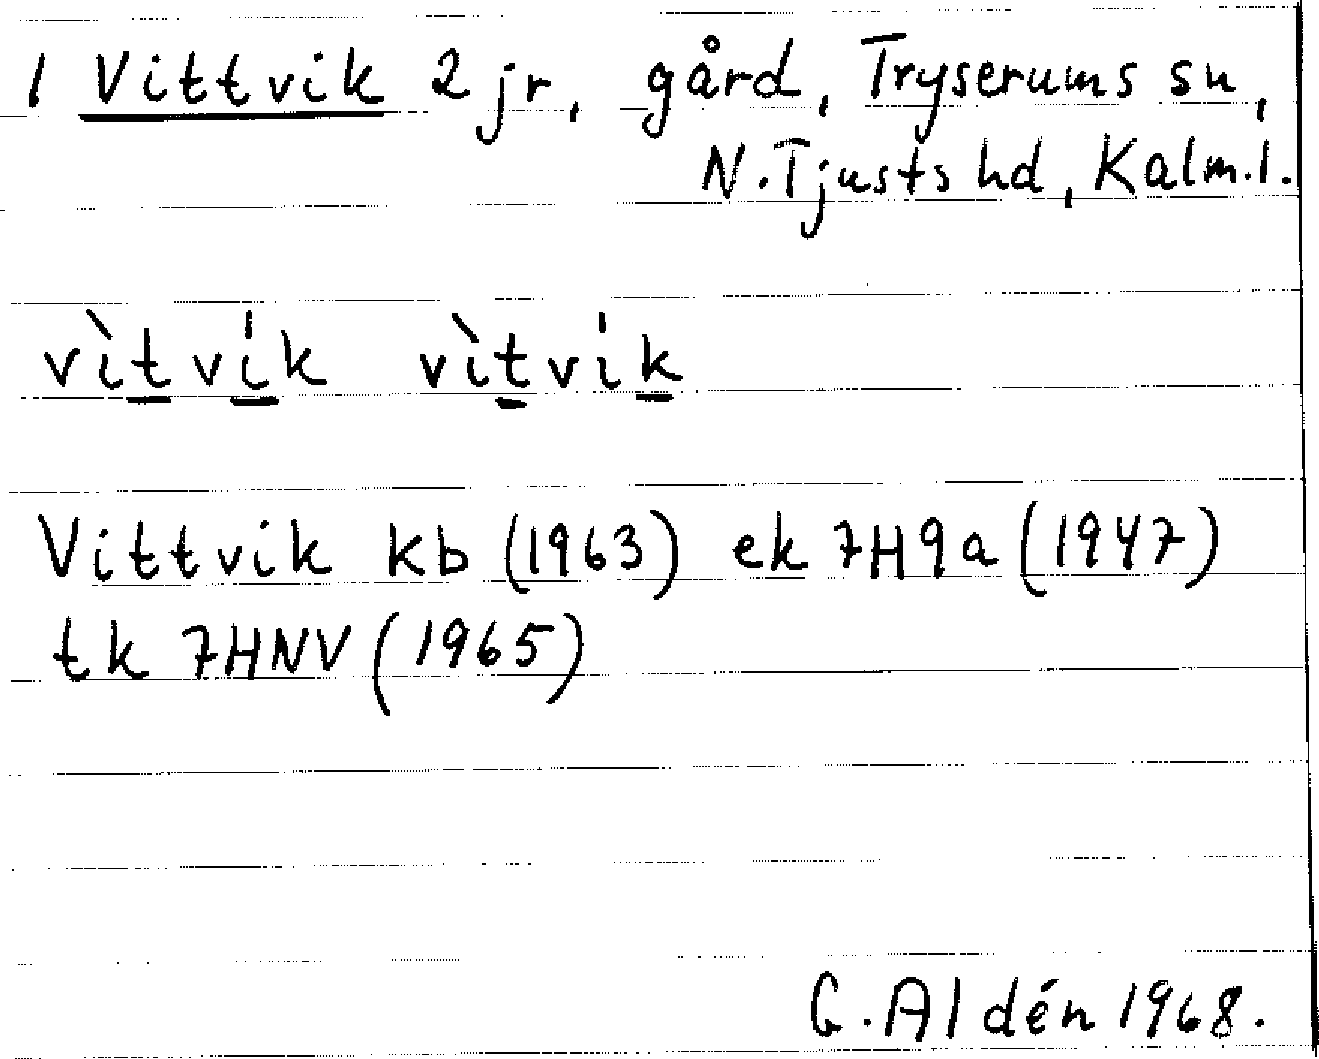 1 Vittvik 2 jr, gård, Tryserums sn,
N. Tjusts hd, Kalm. l.
vìtvík vìtvík
Vittvik kb (1963) ek 7H9a (1947)
tk 7HNV (1965)
G. Aldén 1968.